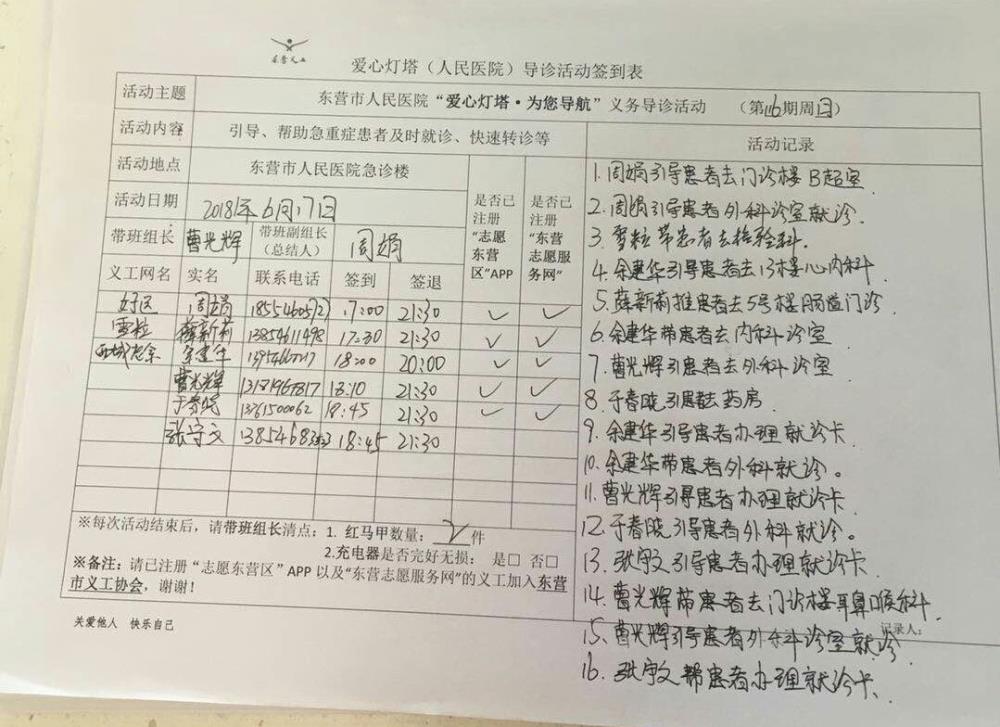 东营义工
爱心灯塔（人民医院）导诊活动签到表
活动主题 东营市人民医院“爱心灯塔·为您导航”义务导诊活动 （第116期周日）
活动内容 引导、帮助急重症患者及时就诊、快速转诊等 活动记录
活动地点 东营市人民医院急诊楼 是否已注册“志愿东营区”APP 是否已注册“东营志愿服务网”
活动日期 2018年6月17日
带班组长 曹光辉 带班副组长（总结人） 周娟
义工网名 实名 联系电话 签到 签退
好运 周娟 17:00 21:30 ✓ ✓
雪粒 薛新莉 13854611498 17:30 21:30 ✓ ✓
西城老余 余建华 18:00 20:00 ✓ ✓
曹光辉 13181967817 18:10 21:30 ✓ ✓
于春晓 13761500062 18:45 21:30 ✓ ✓
张守文 18:45 21:30
※每次活动结束后，请带班组长清点：1. 红马甲数量： 2 件
2.充电器是否完好无损： 是□ 否□
※备注：请已注册“志愿东营区”APP以及“东营志愿服务网”的义工加入东营
市义工协会，谢谢！
关爱他人 快乐自己
1.周娟引导患者去门诊楼B超室.
2.周娟引导患者外科诊室就诊.
3.雪粒带患者去检验科.
4.余建华引导患者去13楼心内科
5.薛新莉推患者去5号楼肠道门诊
6.余建华带患者去内科诊室
7.曹光辉引患者去外科诊室
8.于春晓引患者去药房.
9.余建华引导患者办理就诊卡
10.余建华带患者外科就诊。
11.曹光辉引导患者办理就诊卡
12.于春晓引导患者外科就诊。
13.张守文引导患者办理就诊卡
14.曹光辉带患者去门诊楼耳鼻喉科.
记录人：
15.曹光辉引导患者外科诊室就诊.
16.张守文帮患者办理就诊卡.